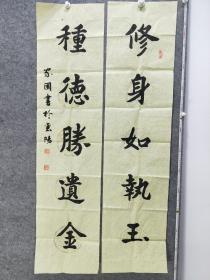 修身如執玉
種德勝遺金
家国書於襄陽